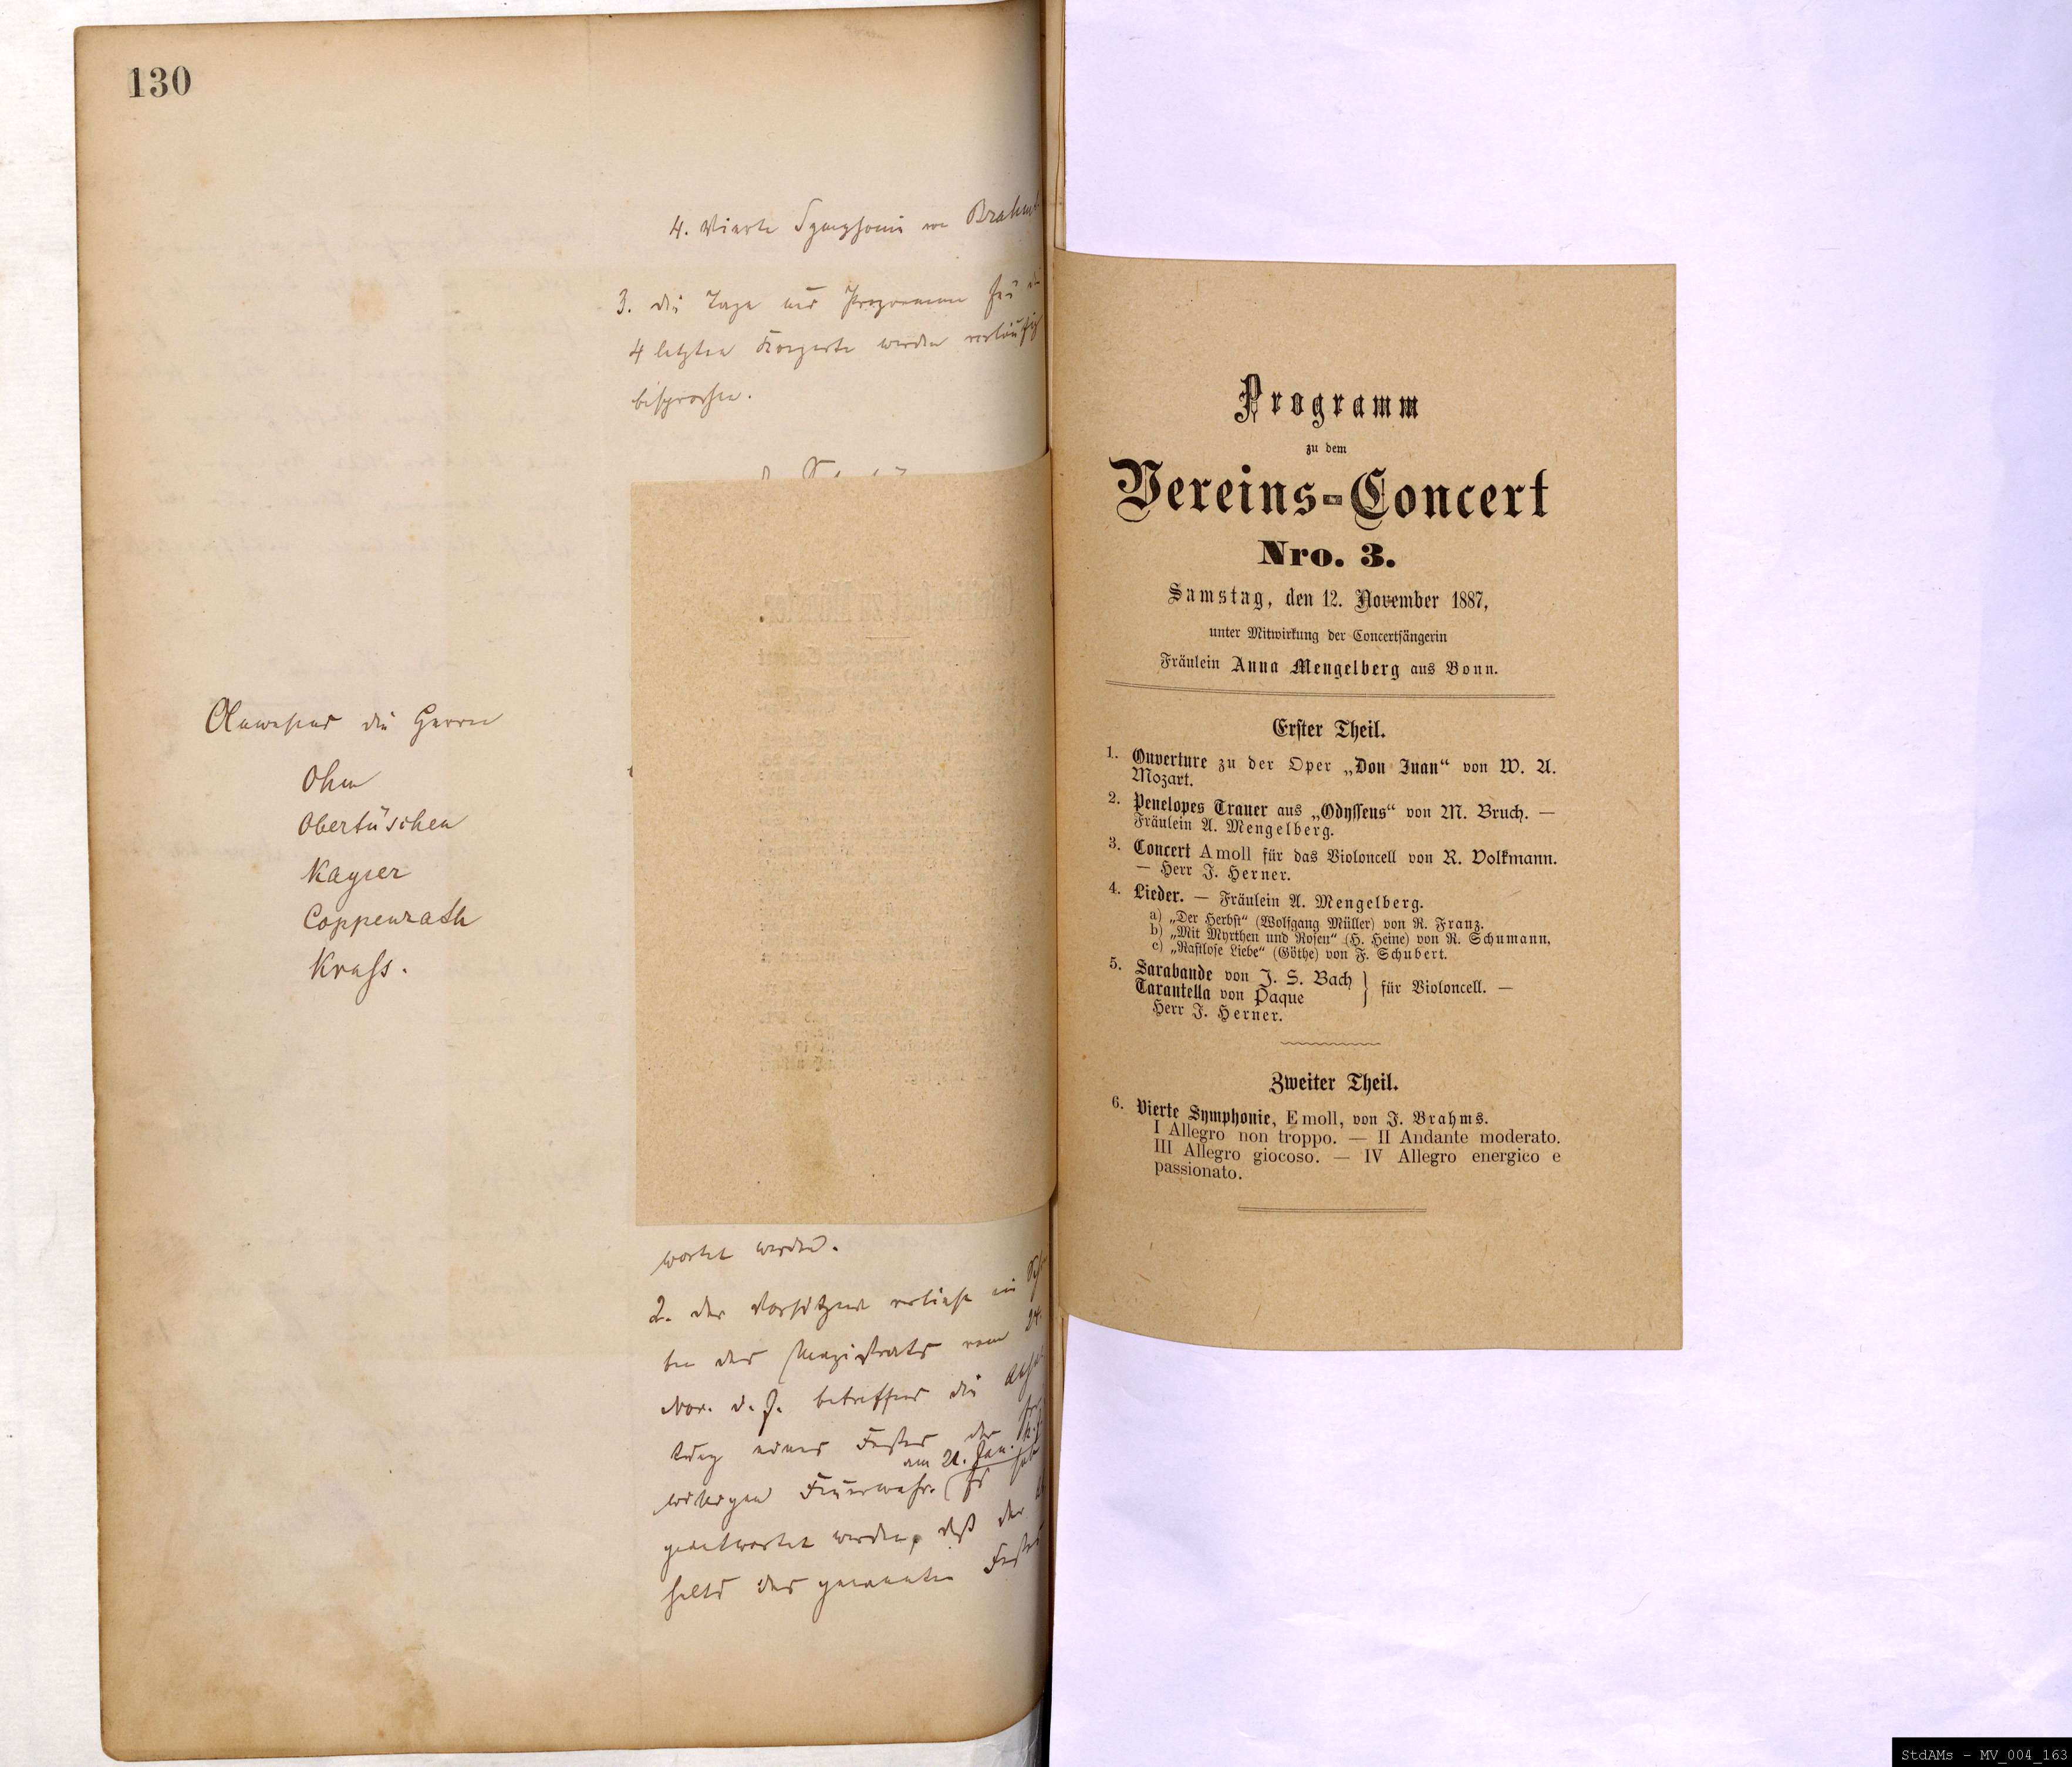 130
4. Vierte Symphonie von Brahms
3. Die Tage und Programme für die
4 letzten Konzerte werden vorläufig
besprochen.
Anwesend die Herrn
Ohm
Obertüschen
Kayser
Coppenrath
Krass.
wortet werden.
2. Der Vorsitzende verliest ein
ben des Magistrats vom 24.
Nov. d. J. betreffend die
tung eines Festes der
willigen Feuerwehr. (Es
am 21. Jan.
geantwortet werden, daß der
halts des genannten Festes
Programm
zu dem
Vereins-Concert
Nro. 3.
Samstag, den 12. November 1887,
unter Mitwirkung der Concertsängerin
Fräulein Anna Mengelberg aus Bonn.
Erster Theil.
1. Ouverture zu der Oper „Don Juan“ von W. A.
Mozart.
2. Penelopes Trauer aus „Odysseus“ von M. Bruch. —
Fräulein A. Mengelberg.
3. Concert A moll für das Violoncell von R. Volkmann.
— Herr J. Herner.
4. Lieder. — Fräulein A. Mengelberg.
a) „Der Herbst“ (Wolfgang Müller) von R. Franz.
b) „Mit Myrthen und Rosen“ (H. Heine) von R. Schumann,
c) „Rastlose Liebe“ (Göthe) von F. Schubert.
5. Sarabande von J. S. Bach
Tarantella von Paque } für Violoncell. —
Herr J. Herner.
Zweiter Theil.
6. Vierte Symphonie, E moll, von J. Brahms.
I Allegro non troppo. — II Andante moderato.
III Allegro giocoso. — IV Allegro energico e
passionato.
StdAMs - MV_004_163